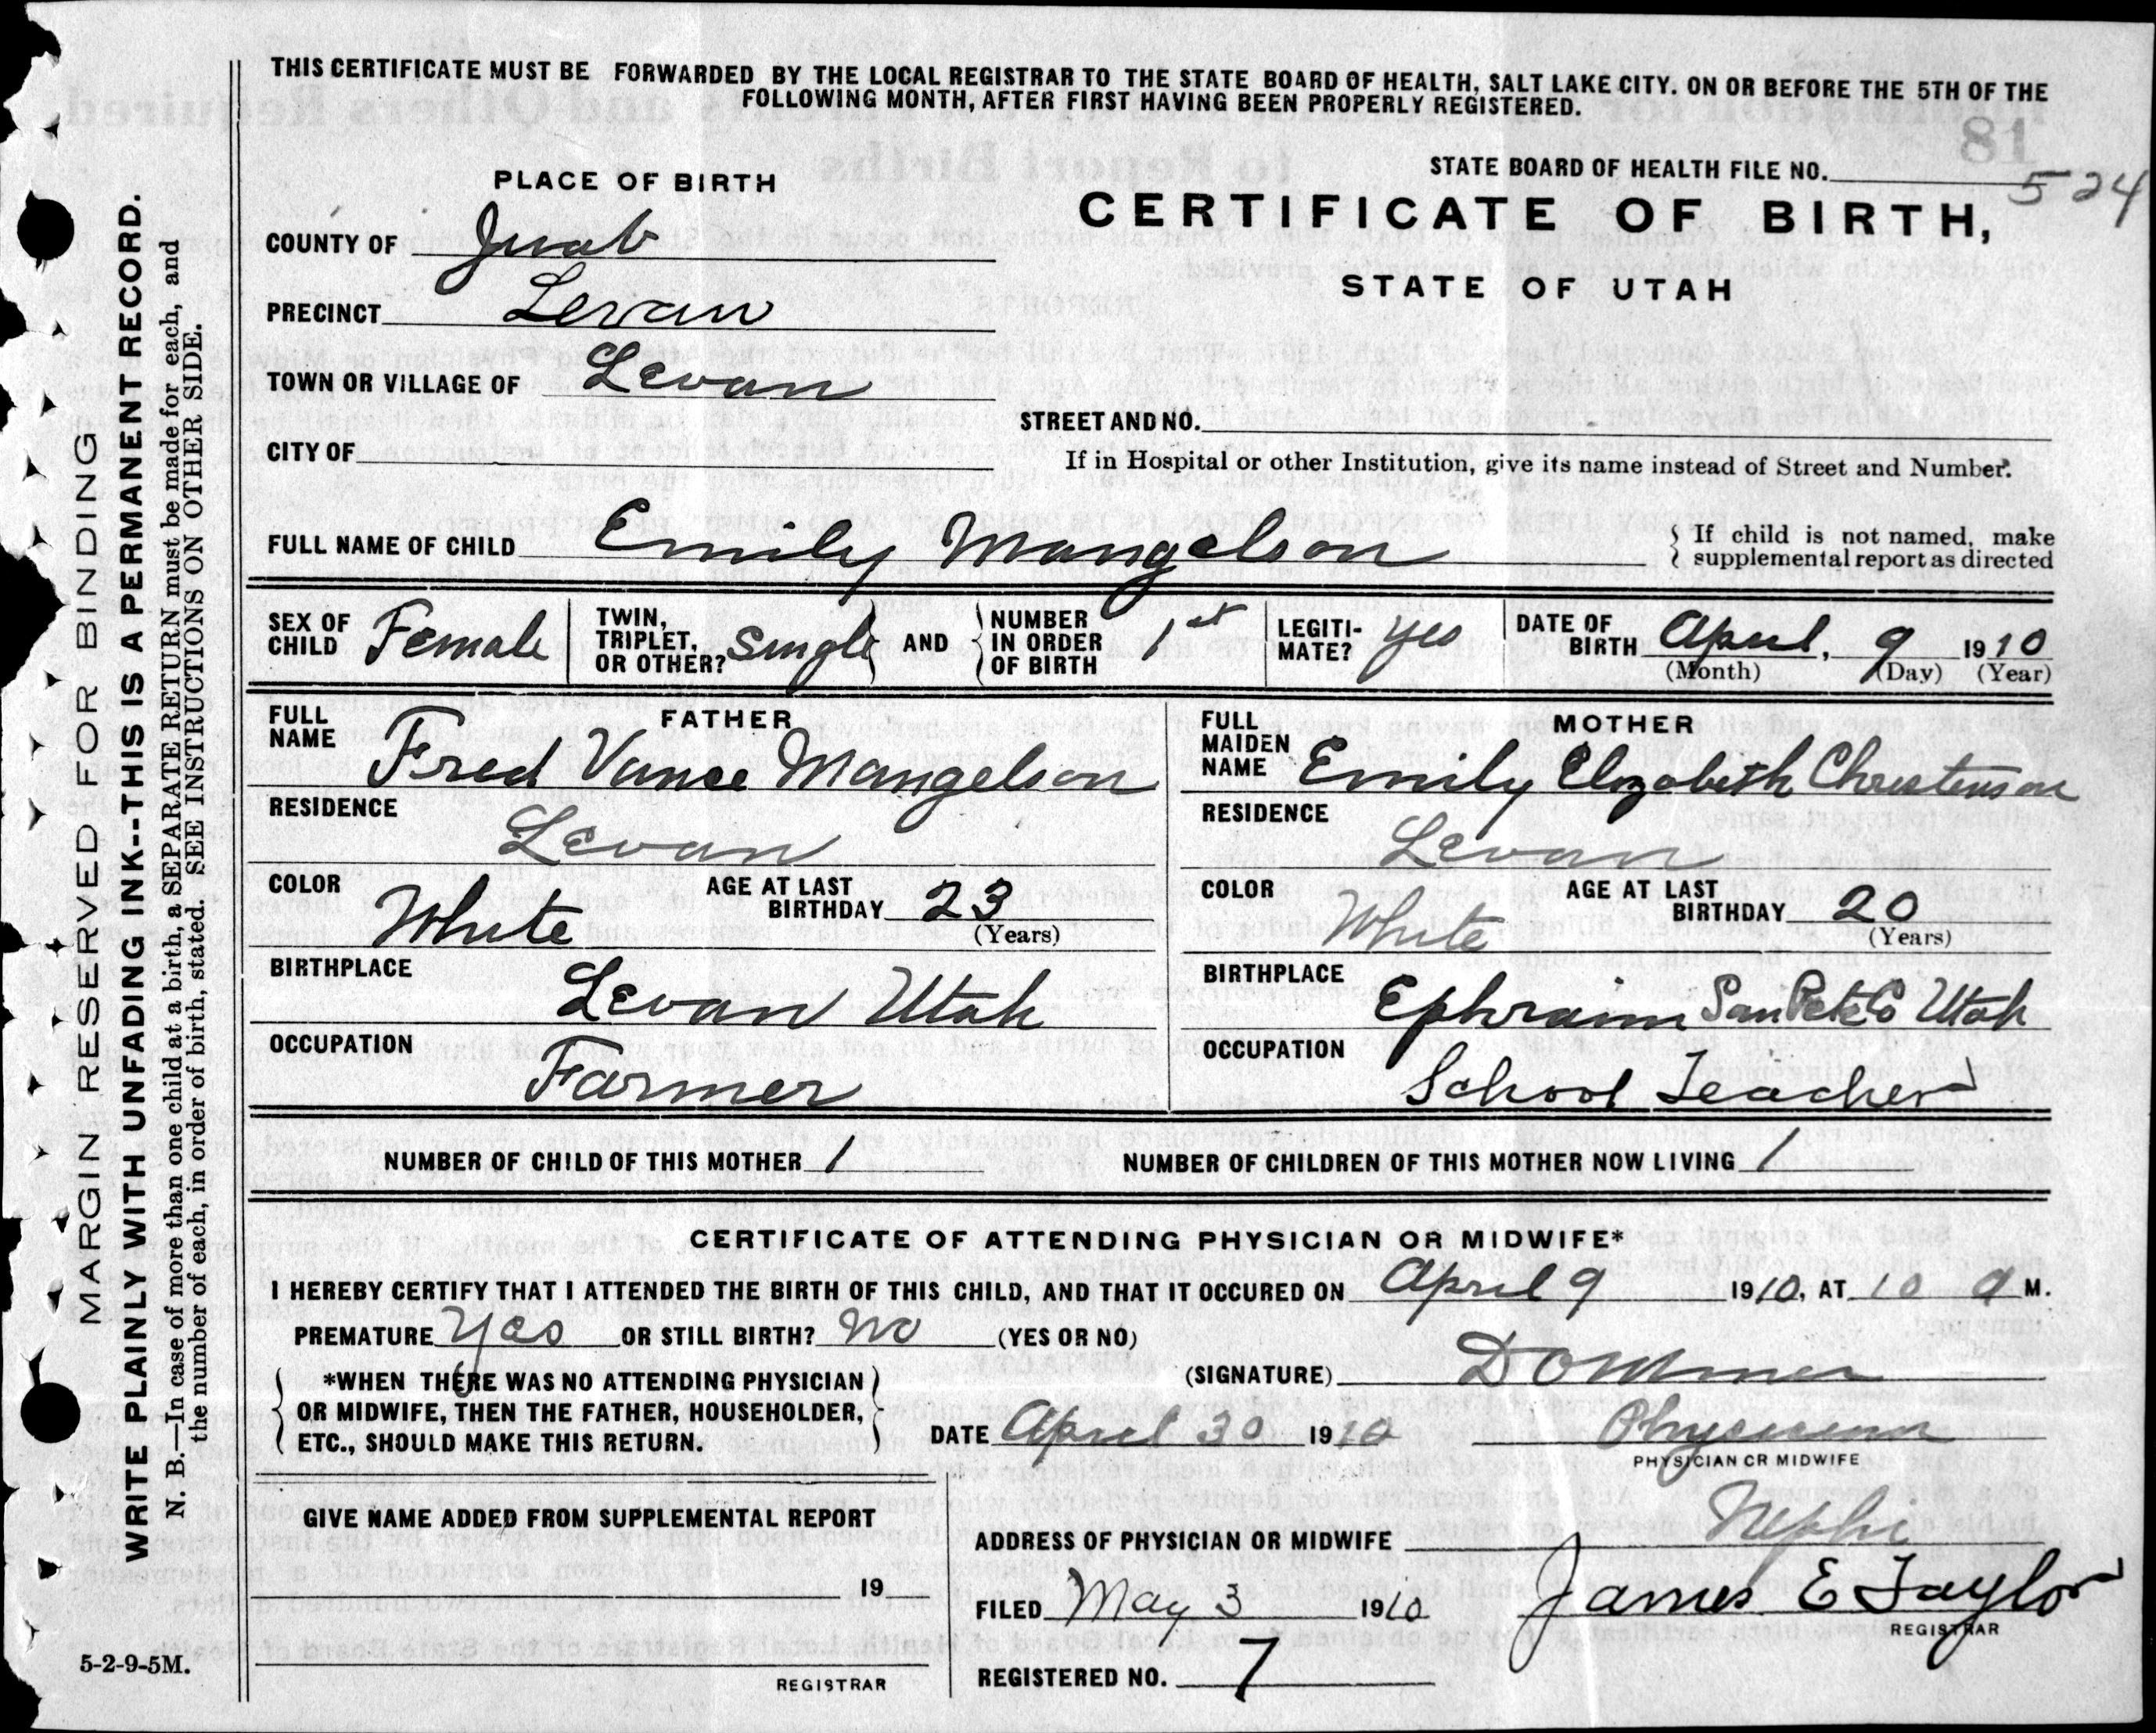 THIS CERTIFICATE MUST BE FORWARDED BY THE LOCAL REGISTRAR TO THE STATE BOARD OF HEALTH, SALT LAKE CITY. ON OR BEFORE THE 5TH OF THE
FOLLOWING MONTH, AFTER FIRST HAVING BEEN PROPERLY REGISTERED.
81
STATE BOARD OF HEALTH FILE NO. 524
PLACE OF BIRTH
CERTIFICATE OF BIRTH,
STATE OF UTAH
COUNTY OF Juab
PRECINCT Levan
TOWN OR VILLAGE OF Levan
STREET AND NO.
CITY OF
If in Hospital or other Institution, give its name instead of Street and Number.
FULL NAME OF CHILD Emily Mangelson
If child is not named, make
supplemental report as directed
SEX OF CHILD Female TWIN, TRIPLET, OR OTHER? Single AND NUMBER IN ORDER OF BIRTH 1st LEGITI-MATE? yes DATE OF BIRTH April, 9 1910
(Month) (Day) (Year)
FATHER
FULL NAME Fred Vance Mangelson
RESIDENCE
Levan
COLOR White AGE AT LAST BIRTHDAY 23
(Years)
BIRTHPLACE
Levan Utah
OCCUPATION
Farmer
MOTHER
FULL MAIDEN NAME Emily Elizabeth Christenson
RESIDENCE
Levan
COLOR White AGE AT LAST BIRTHDAY 20
(Years)
BIRTHPLACE
Ephraim SanPete Co Utah
OCCUPATION
School Teacher
NUMBER OF CHILD OF THIS MOTHER 1 NUMBER OF CHILDREN OF THIS MOTHER NOW LIVING 1
CERTIFICATE OF ATTENDING PHYSICIAN OR MIDWIFE*
I HEREBY CERTIFY THAT I ATTENDED THE BIRTH OF THIS CHILD, AND THAT IT OCCURED ON April 9 1910, AT 10 a M.
PREMATURE Yes OR STILL BIRTH? No (YES OR NO)
*WHEN THERE WAS NO ATTENDING PHYSICIAN
OR MIDWIFE, THEN THE FATHER, HOUSEHOLDER,
ETC., SHOULD MAKE THIS RETURN.
(SIGNATURE)
DATE April 30 1910 Physician
PHYSICIAN OR MIDWIFE
GIVE NAME ADDED FROM SUPPLEMENTAL REPORT
19
REGISTRAR
ADDRESS OF PHYSICIAN OR MIDWIFE Nephi
FILED May 3 1910 James E Taylor
REGISTRAR
REGISTERED NO. 7
5-2-9-5M.
MARGIN RESERVED FOR BINDING
WRITE PLAINLY WITH UNFADING INK--THIS IS A PERMANENT RECORD.
N. B.—In case of more than one child at a birth, a SEPARATE RETURN must be made for each, and
the number of each, in order of birth, stated. SEE INSTRUCTIONS ON OTHER SIDE.